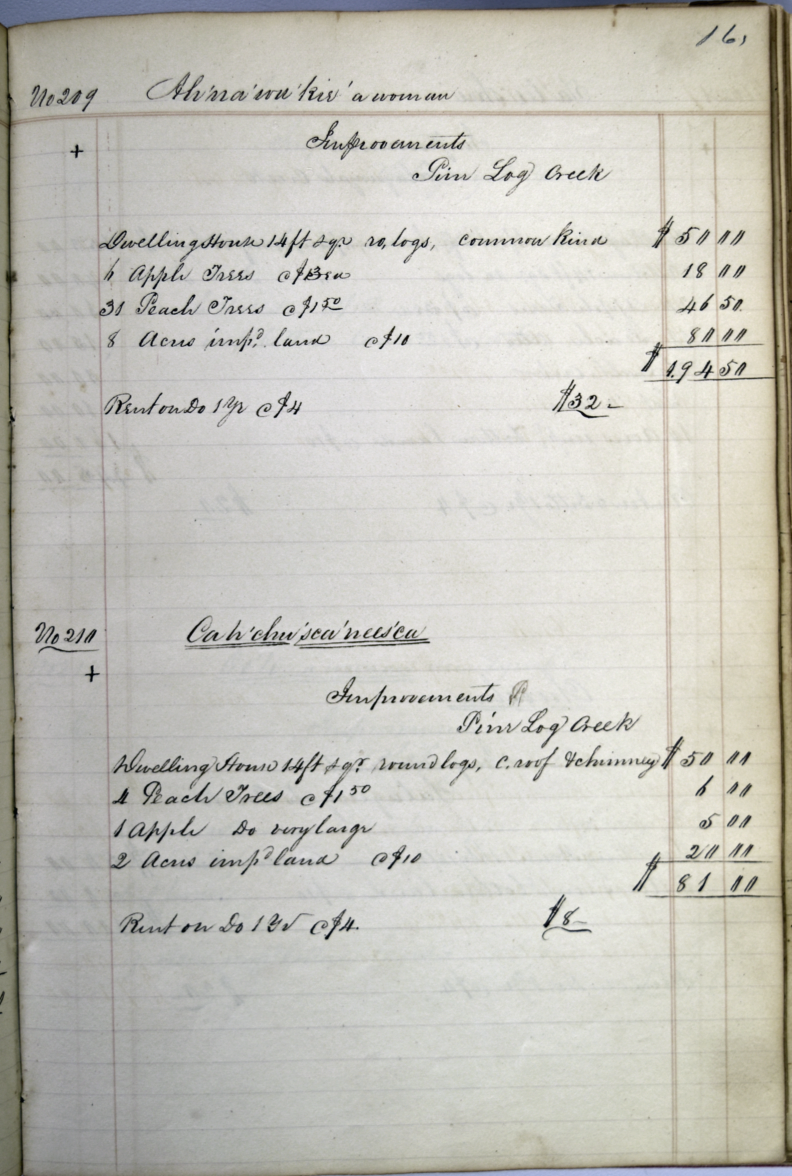 16,
No 209 Ah'na'wa'kie' a woman
+ Improvements
Pine Log Creek
Dwelling House 14 ft sqr ro, logs, common kind $ 50 00
6 Apple Trees @ $3 ea 18 00
31 Peach Trees @ $1 50 46 50
8 Acres imp.d land @ $10 80 00
$ 194 50
Rent on Do 1 Yr @ $4 $32 -
No 210 Cah'chu'sca'nees'ca
+ Improvements
Pine Log Creek
1 Dwelling House 14 ft sqr round logs, c. roof & chimney $ 50 00
4 Peach Trees @ $1 50 6 00
1 Apple Do very large 5 00
2 Acres imp.d land @ $10 20 00
$ 81 00
Rent on Do 1 Yr @ $4. $8 -